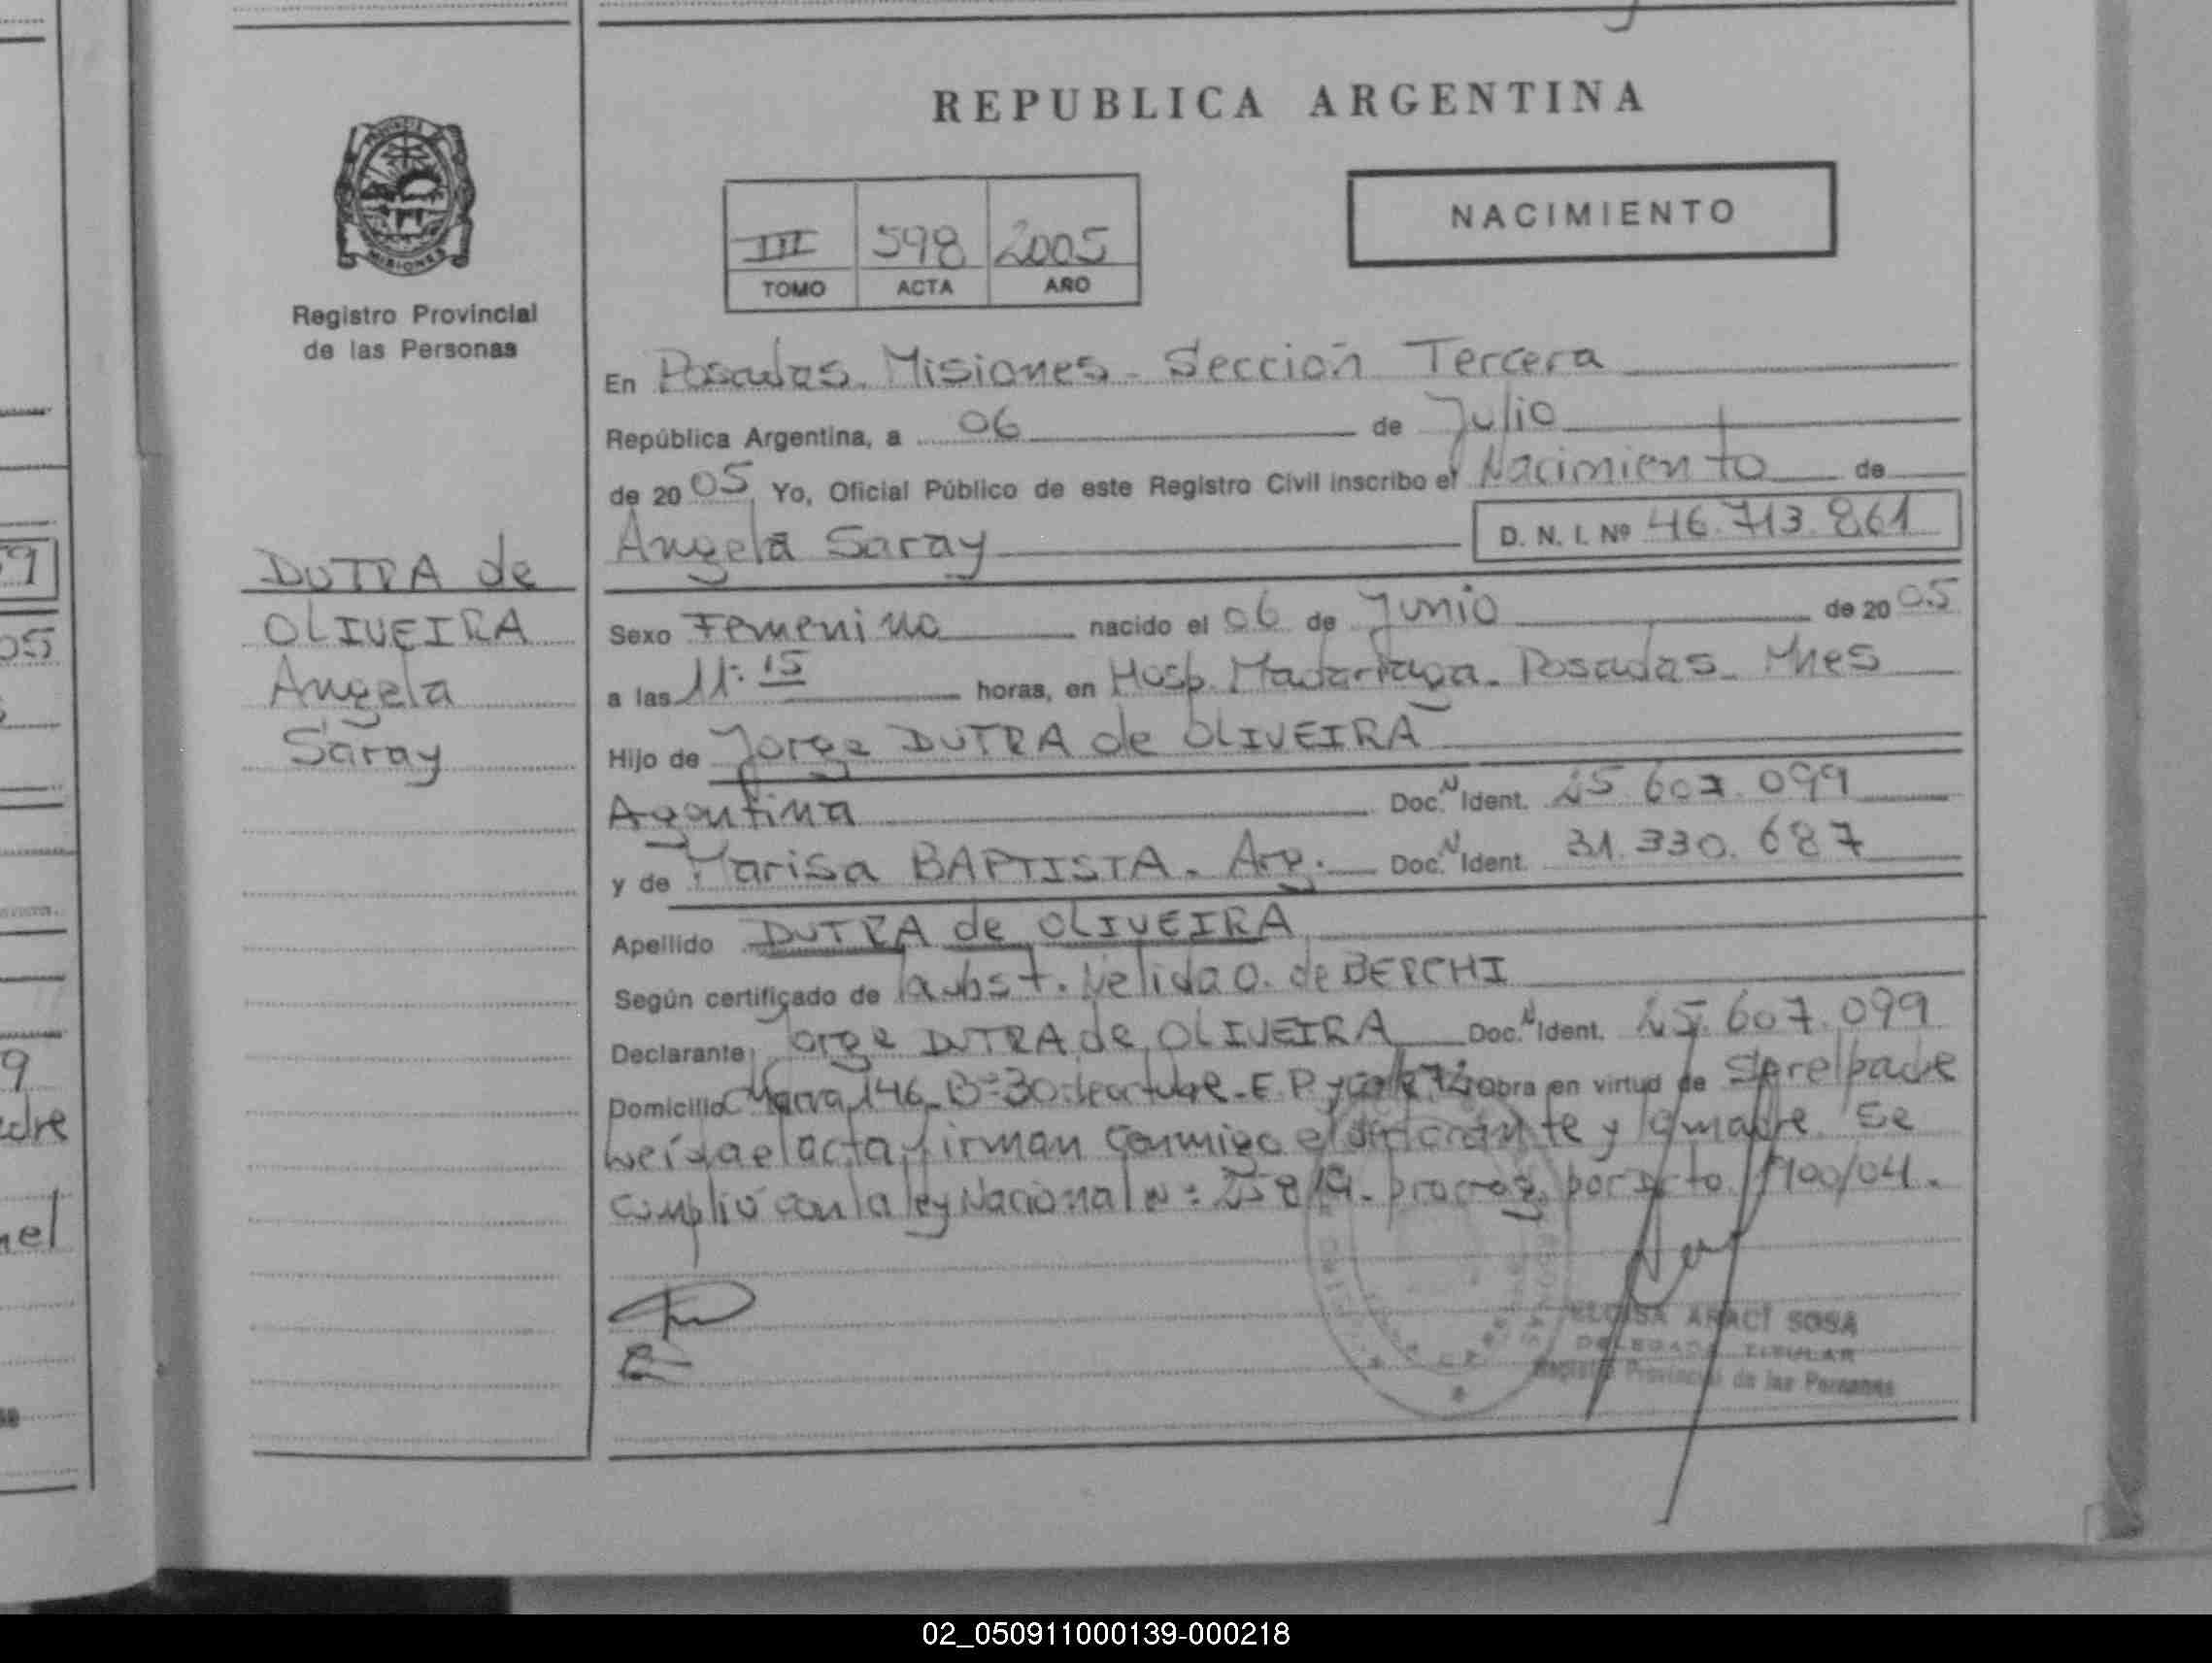 REPUBLICA ARGENTINA
NACIMIENTO
III 598 2005
TOMO ACTA AÑO
PROVINCIA DE
MISIONES
Registro Provincial
de las Personas
DUTRA de
OLIVEIRA
Angela
Saray
En Posadas. Misiones - Sección Tercera
República Argentina, a 06 de Julio
de 2005 Yo, Oficial Público de este Registro Civil inscribo el Nacimiento de
Angela Saray D. N. I. Nº 46.713.861
Sexo Femenino nacido el 06 de Junio de 2005
a las 11:15 horas, en Hosp. Madariaga. Posadas. Mnes
Hijo de Jorge DUTRA de OLIVEIRA
Agentina Doc. N Ident. 25.607.099
y de Marisa BAPTISTA. Arg. Doc. N Ident. 31.330.687
Apellido DUTRA de OLIVEIRA
Según certificado de la obst. Nelida O. de BERCHI
Declarante Jorge DUTRA de OLIVEIRA Doc. N Ident. 25.607.099
Domicilio Chacra 146 Bº 30 de octubre - E.P. y obra en virtud de Ser el padre
Leída el acta, firman conmigo el declarante y la madre. Se
cumplió con la ley Nacional Nº 25819. prorrog. por Dcto. 1900/04.
ELOISA ARACÍ SOSA
DELEGADA TITULAR
Registro Provincial de las Personas
02_050911000139-000218